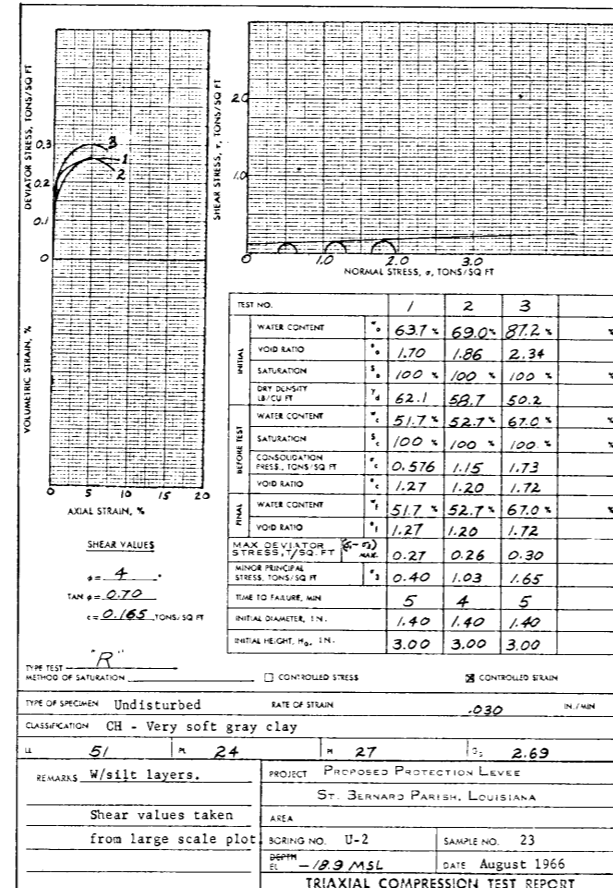 DEVIATOR STRESS, TONS/SQ FT
0.3
0.2
0.1
0
3
1
2
VOLUMETRIC STRAIN, %
0 5 10 15 20
AXIAL STRAIN, %
SHEAR STRESS, τ, TONS/SQ FT
2.0
1.0
0 1.0 2.0 3.0
NORMAL STRESS, σ, TONS/SQ FT
SHEAR VALUES
φ = 4 °
TAN φ = 0.70
c = 0.165 TONS/SQ FT
TEST NO. 1 2 3
INITIAL
WATER CONTENT 63.7 % 69.0 % 87.2 % %
VOID RATIO 1.70 1.86 2.34
SATURATION 100 % 100 % 100 % %
DRY DENSITY LB/CU FT 62.1 58.7 50.2
BEFORE TEST
WATER CONTENT 51.7 % 52.7 % 67.0 % %
SATURATION 100 % 100 % 100 % %
CONSOLIDATION PRESS., TONS/SQ FT 0.576 1.15 1.73
VOID RATIO 1.27 1.20 1.72
FINAL
WATER CONTENT 51.7 % 52.7 % 67.0 % %
VOID RATIO 1.27 1.20 1.72
MAX DEVIATOR STRESS, T/SQ. FT MAX. 0.27 0.26 0.30
MINOR PRINCIPAL STRESS, TONS/SQ FT 0.40 1.03 1.65
TIME TO FAILURE, MIN 5 4 5
INITIAL DIAMETER, IN. 1.40 1.40 1.40
INITIAL HEIGHT, H₀, IN. 3.00 3.00 3.00
TYPE TEST "R"
METHOD OF SATURATION
☐ CONTROLLED STRESS ☒ CONTROLLED STRAIN
TYPE OF SPECIMEN Undisturbed RATE OF STRAIN .030 IN./MIN
CLASSIFICATION CH - Very soft gray clay
LL 51 PL 24 PI 27 Gs 2.69
REMARKS W/silt layers.
Shear values taken
from large scale plot
PROJECT PROPOSED PROTECTION LEVEE
ST. BERNARD PARISH, LOUISIANA
AREA
BORING NO. U-2 SAMPLE NO. 23
DEPTH
EL -18.9 MSL DATE August 1966
TRIAXIAL COMPRESSION TEST REPORT